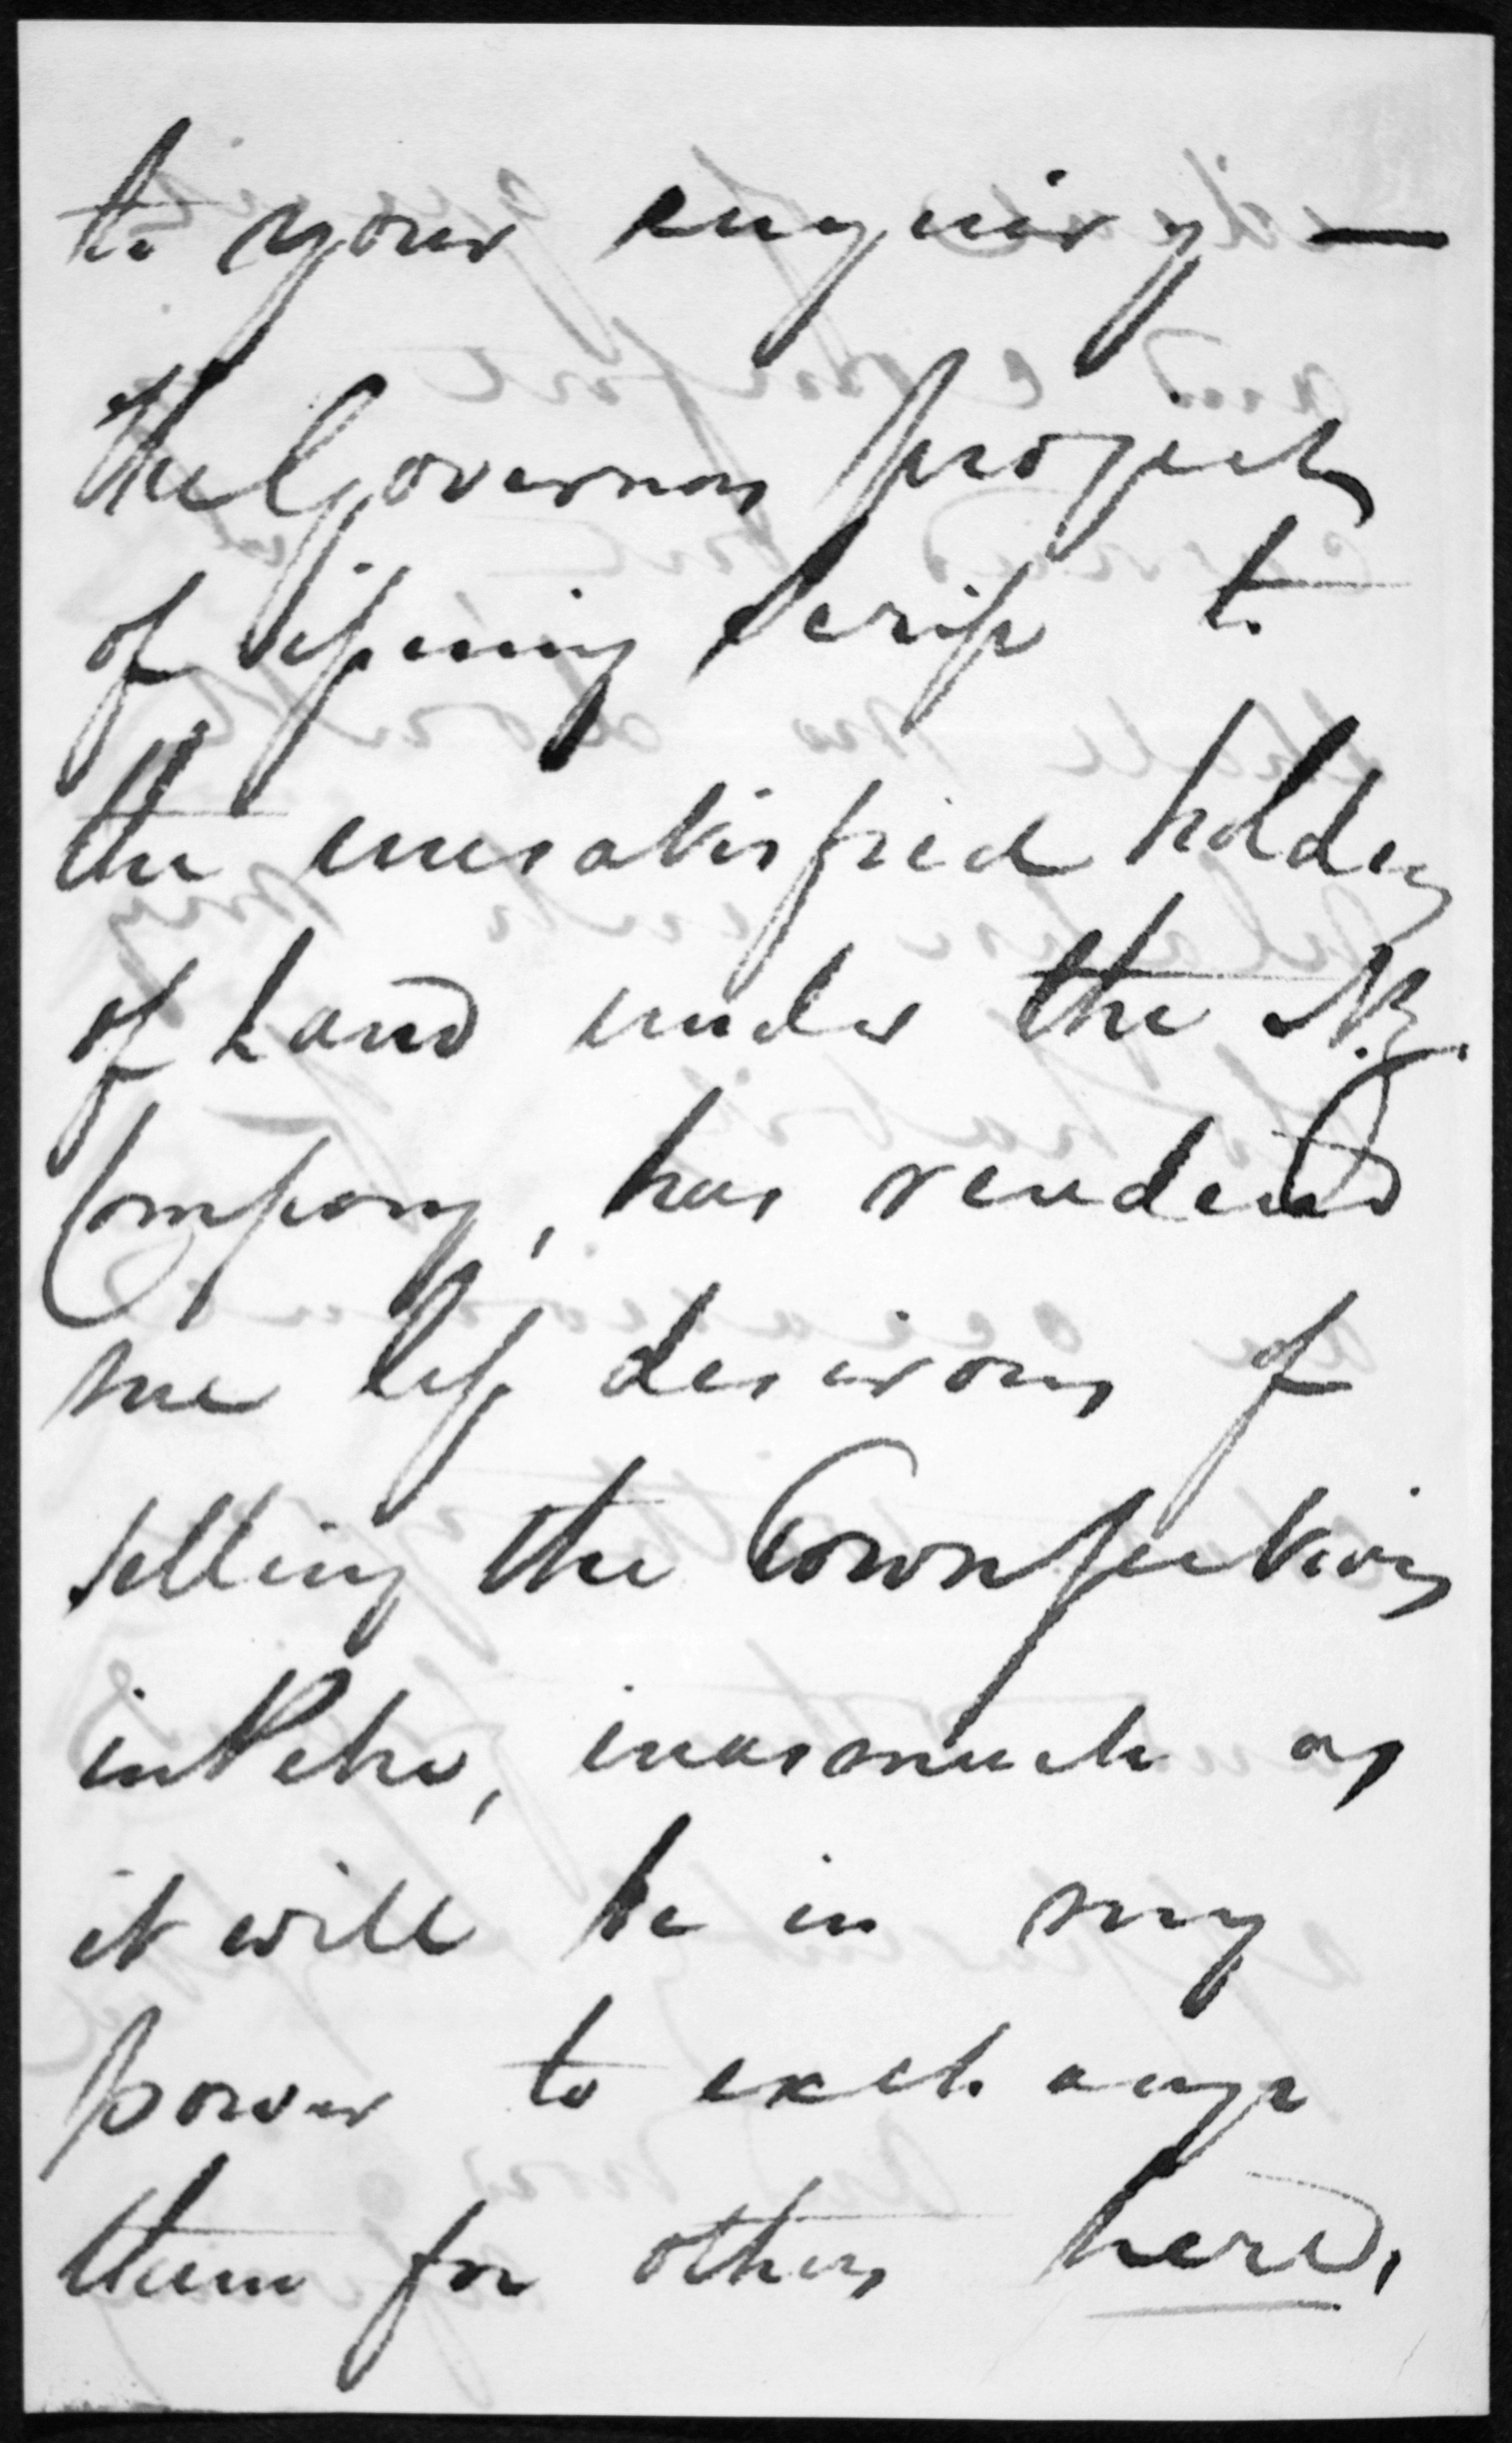 to your enquiry —
the Governors project
of issuing Scrip to
the unsatisfied holders
of Land under the N.Z.
Company, has rendered
me less desirous of
selling the Town sections
in Petre, inasmuch as
it will be in my
power to exchange
them for others here.